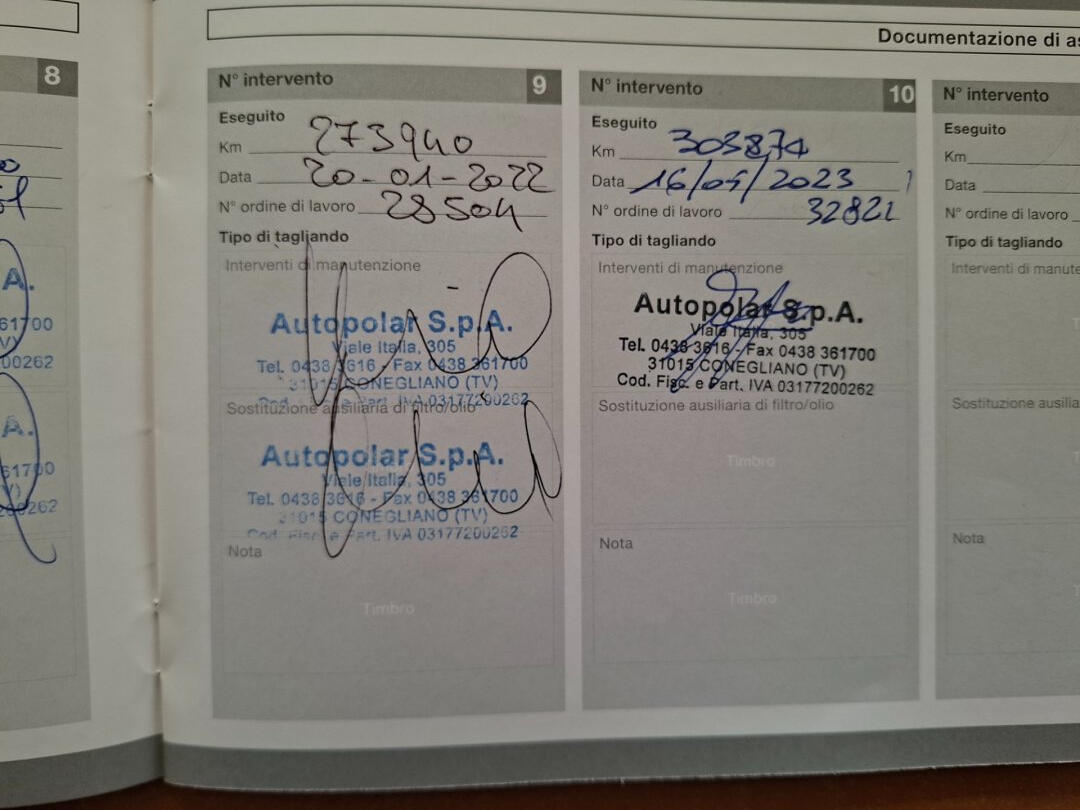 8
A.
61700
V)
00262
A.
61700
V)
200262
Documentazione di as
N° intervento 9
Eseguito
Km 273940
Data 20-01-2022
N° ordine di lavoro 28504
Tipo di tagliando
Interventi di manutenzione
Autopolar S.p.A.
Viale Italia, 305
Tel. 0438 3616 - Fax 0438 361700
31015 CONEGLIANO (TV)
Cod. Fisc. e Part. IVA 03177200262
Sostituzione ausiliaria di filtro/olio
Autopolar S.p.A.
Viale Italia, 305
Tel. 0438 3616 - Fax 0438 361700
31015 CONEGLIANO (TV)
Cod. Fisc. e Part. IVA 03177200262
Nota
Timbro
N° intervento 10
Eseguito
Km 303874
Data 16/05/2023
N° ordine di lavoro 32821
Tipo di tagliando
Interventi di manutenzione
Autopolar S.p.A.
Viale Italia, 305
Tel. 0438 3616 - Fax 0438 361700
31015 CONEGLIANO (TV)
Cod. Fisc. e Part. IVA 03177200262
Sostituzione ausiliaria di filtro/olio
Timbro
Nota
Timbro
N° intervento
Eseguito
Km
Data
N° ordine di lavoro
Tipo di tagliando
Interventi di manute
Sostituzione ausilia
Nota